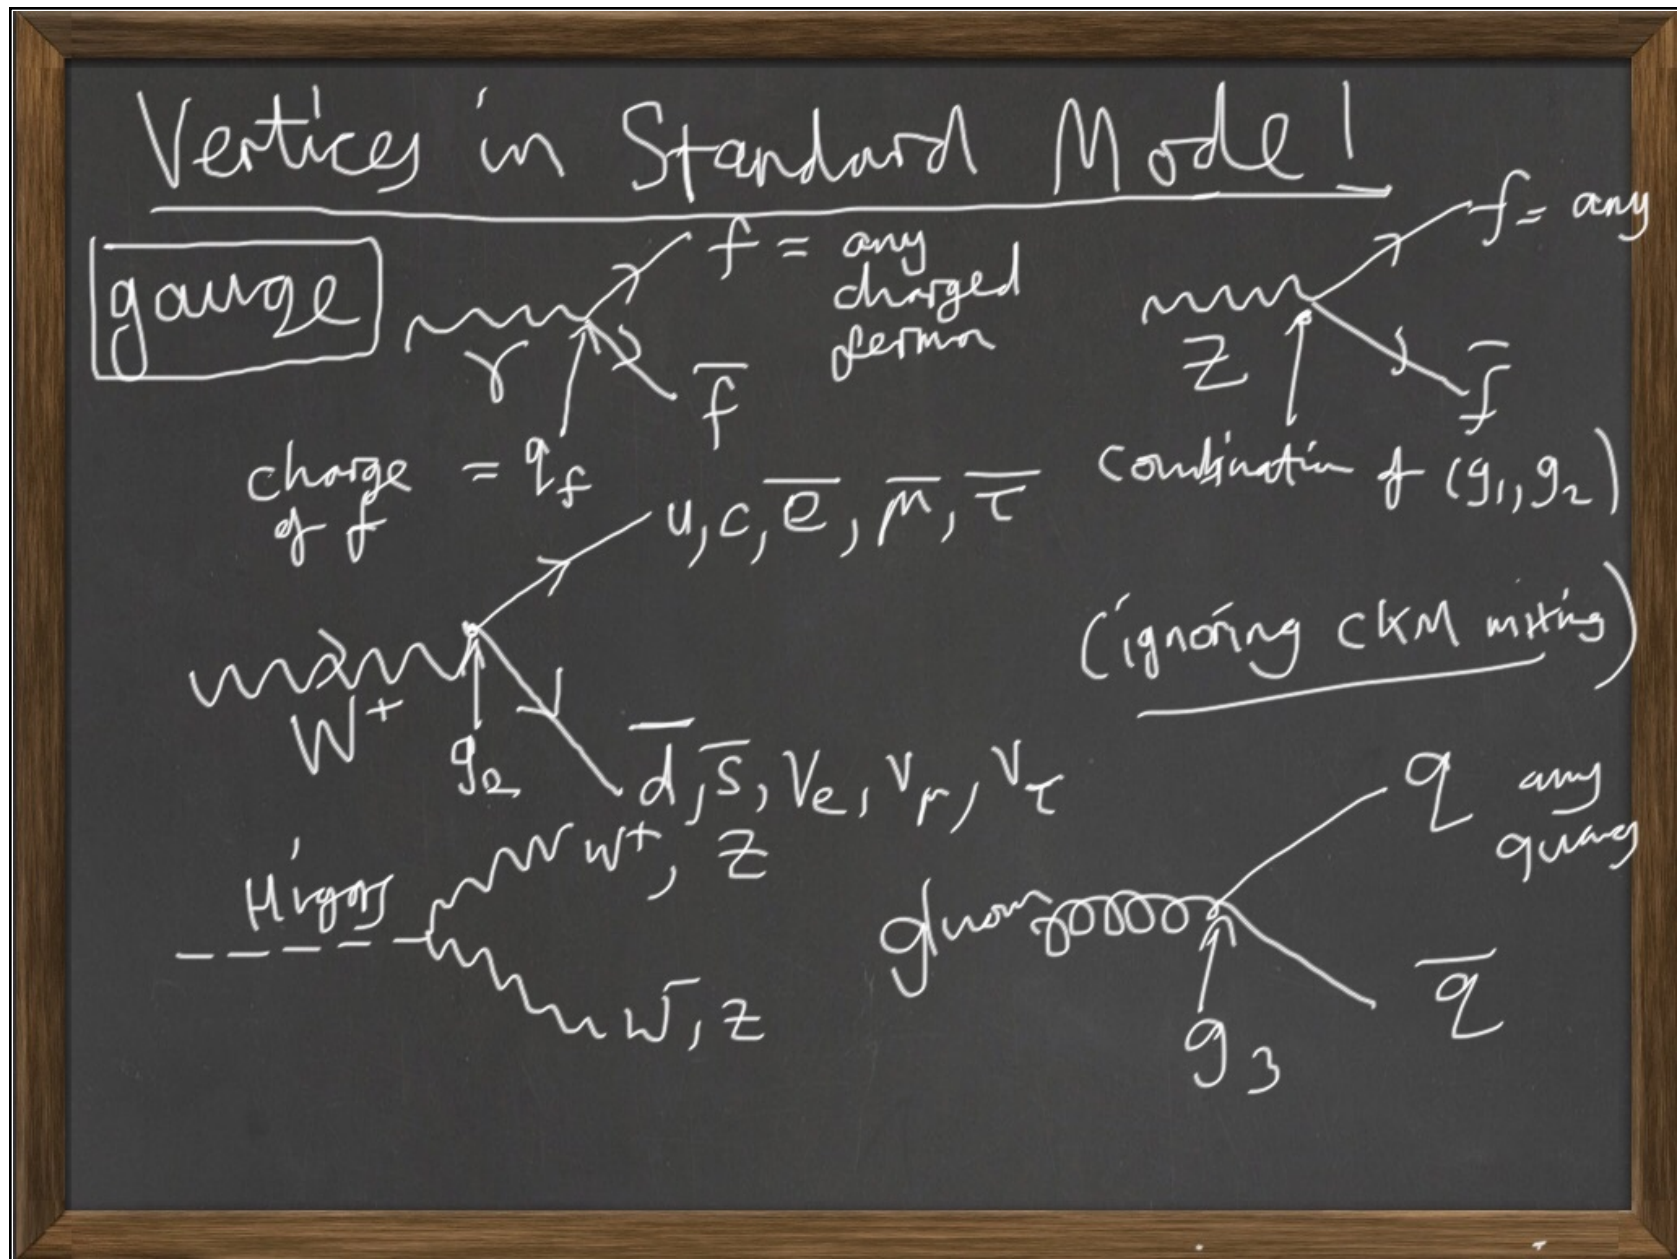 Vertices in Standard Model
gauge
γ
f = any
charged
fermion
f̅
charge = q_f
of f
f = any
Z
f̅
combination of (g₁, g₂)
u, c, e̅, μ̅, τ̅
W⁺
g₂
d̅, s̅, ν_e, ν_μ, ν_τ
(ignoring CKM mixing)
Higgs
W⁺, Z
W⁻, Z
gluon
q any
quark
q̅
g₃